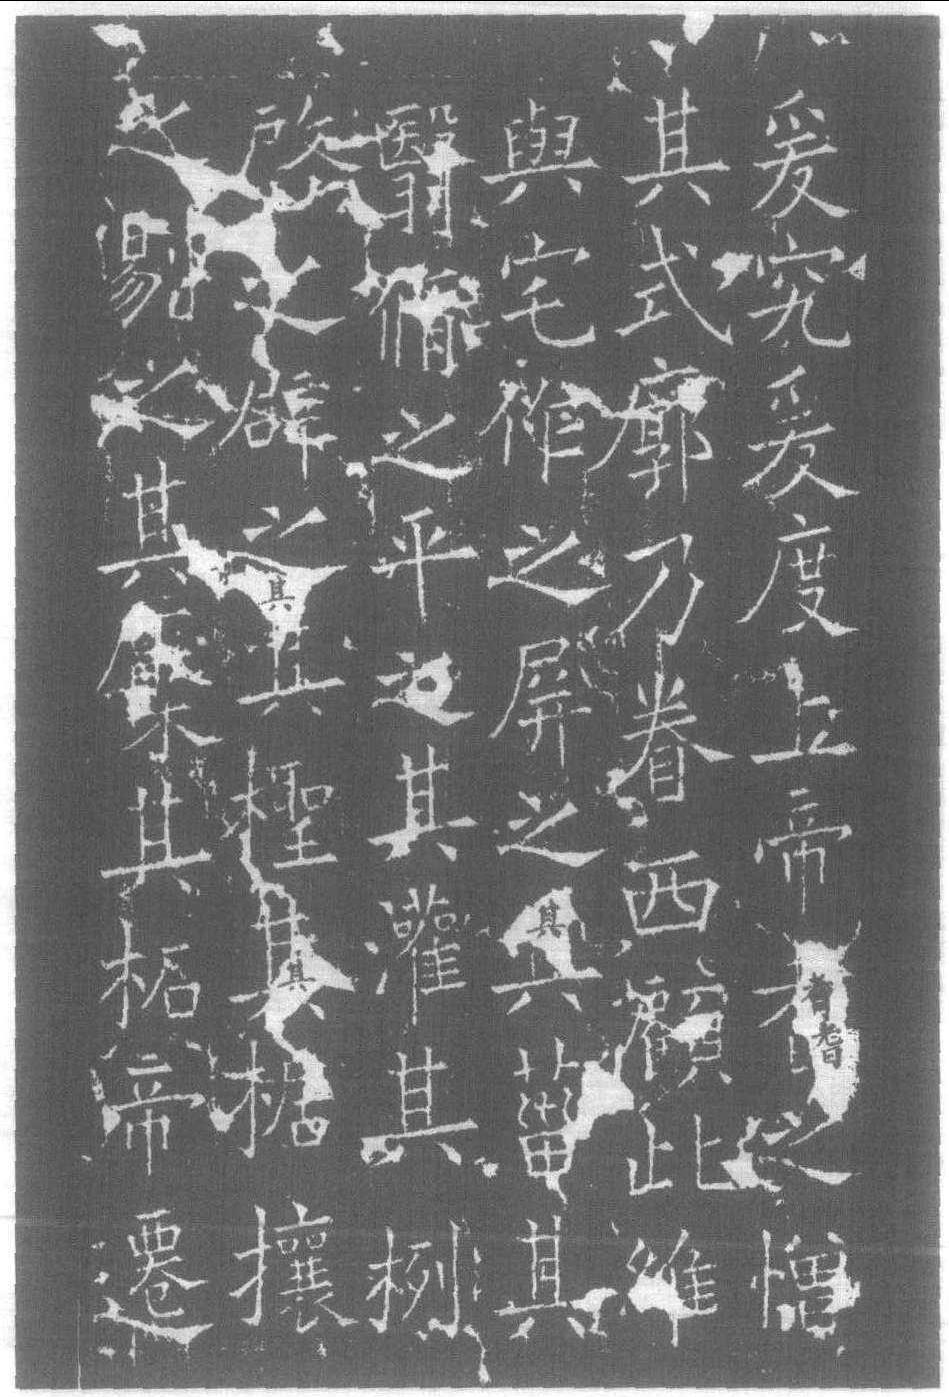 爰究爰度上帝耆之憎
其式廓乃眷西顧此維
與宅作之屏之其菑其
翳脩之平之其灌其栵
啟之辟之其檉其椐攘
之剔之其檿其柘帝遷
耆耆
其
其
其